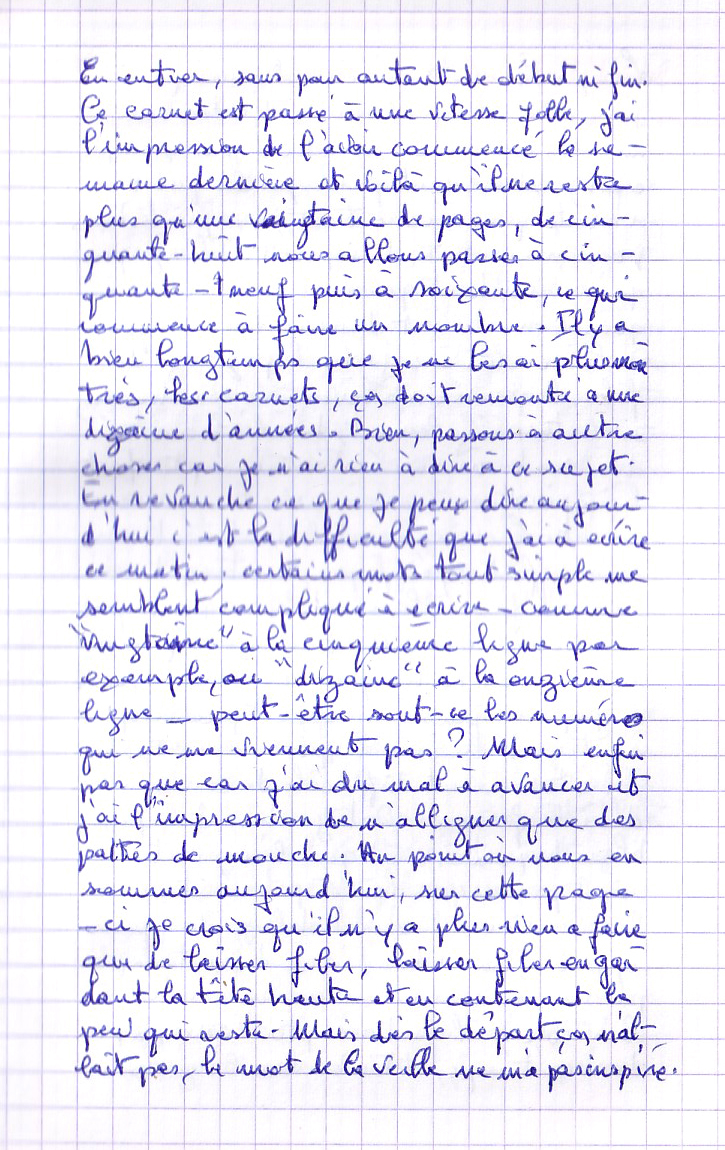 En entrer, sans pour autant de début ni fin.
Ce carnet est passé à une vitesse folle, j'ai
l'impression de l'avoir commencé la se-
maine dernière et voilà qu'il ne reste
plus qu'une vaingtaine de pages, de cin-
quante-huit nous allons passer à cin-
quante-neuf puis à soixante, ce qui
commence à faire un nombre. Il y a
bien longtemps que je ne les ai plus mon
trés, les carnets, ça doit remonté a une
dizaine d'années. Bien, passons à autre
chose car je n'ai rien à dire à ce sujet.
En revanche ce que je peux dire aujour-
d'hui c'est la difficulté que j'ai à écrire
ce matin, certains mots tout simple me
semblent compliqué à écrire - comme
"vingtaine" à la cinquième ligne par
exemple, ou "dizaine" à la onzième
ligne - peut-être sont-ce les numéros
qui ne me viennent pas ? Mais enfin
pas que car j'ai du mal à avancer et
j'ai l'impression de n'alligner que des
pattes de mouche. Au point où nous en
sommes aujourd'hui, sur cette page
-ci je crois qu'il n'y a plus rien a faire
que de laisser filer, laisser filer en gar
dant la tête haute et en contenant le
peu qui reste. Mais dès le départ ça n'al-
lait pas, le mot de la veille ne m'a pas inspiré.